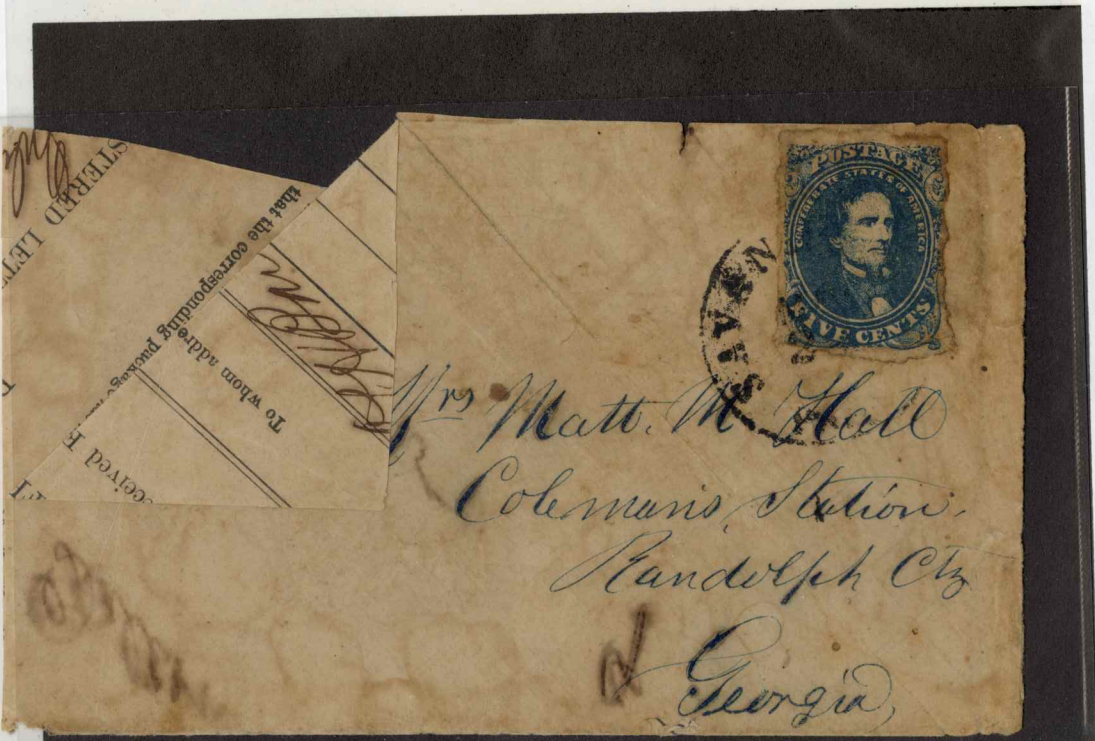 POSTAGE
CONFEDERATE STATES OF AMERICA
FIVE CENTS
SAVAN
Mrs Matt. M Hall
Colemans, Station,
Randolph Cty
Georgia,
STERED LET
that the corresponding packag
To whom addre
ceived